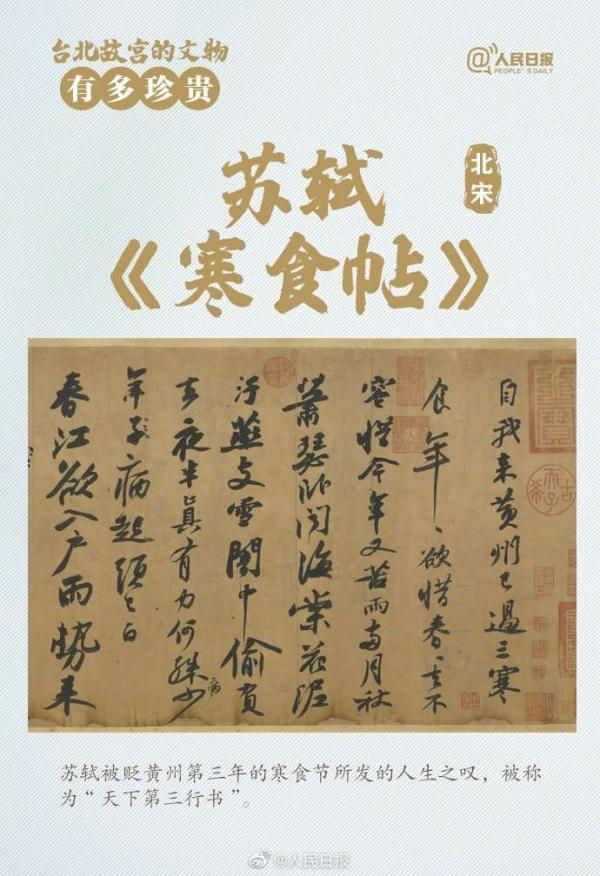 台北故宫的文物
有多珍贵
@人民日报
PEOPLE'S DAILY
苏轼
北宋
《寒食帖》
自我来黄州已過三寒
食年〻欲惜春〻去不
容惜今年又苦雨兩月秋
蕭瑟卧聞海棠花泥
汙燕支雪闇中偷負
去夜半真有力何殊病少
年子病起頭已白
春江欲入户雨勢来
苏轼被贬黄州第三年的寒食节所发的人生之叹，被称
为“天下第三行书”。
@人民日报